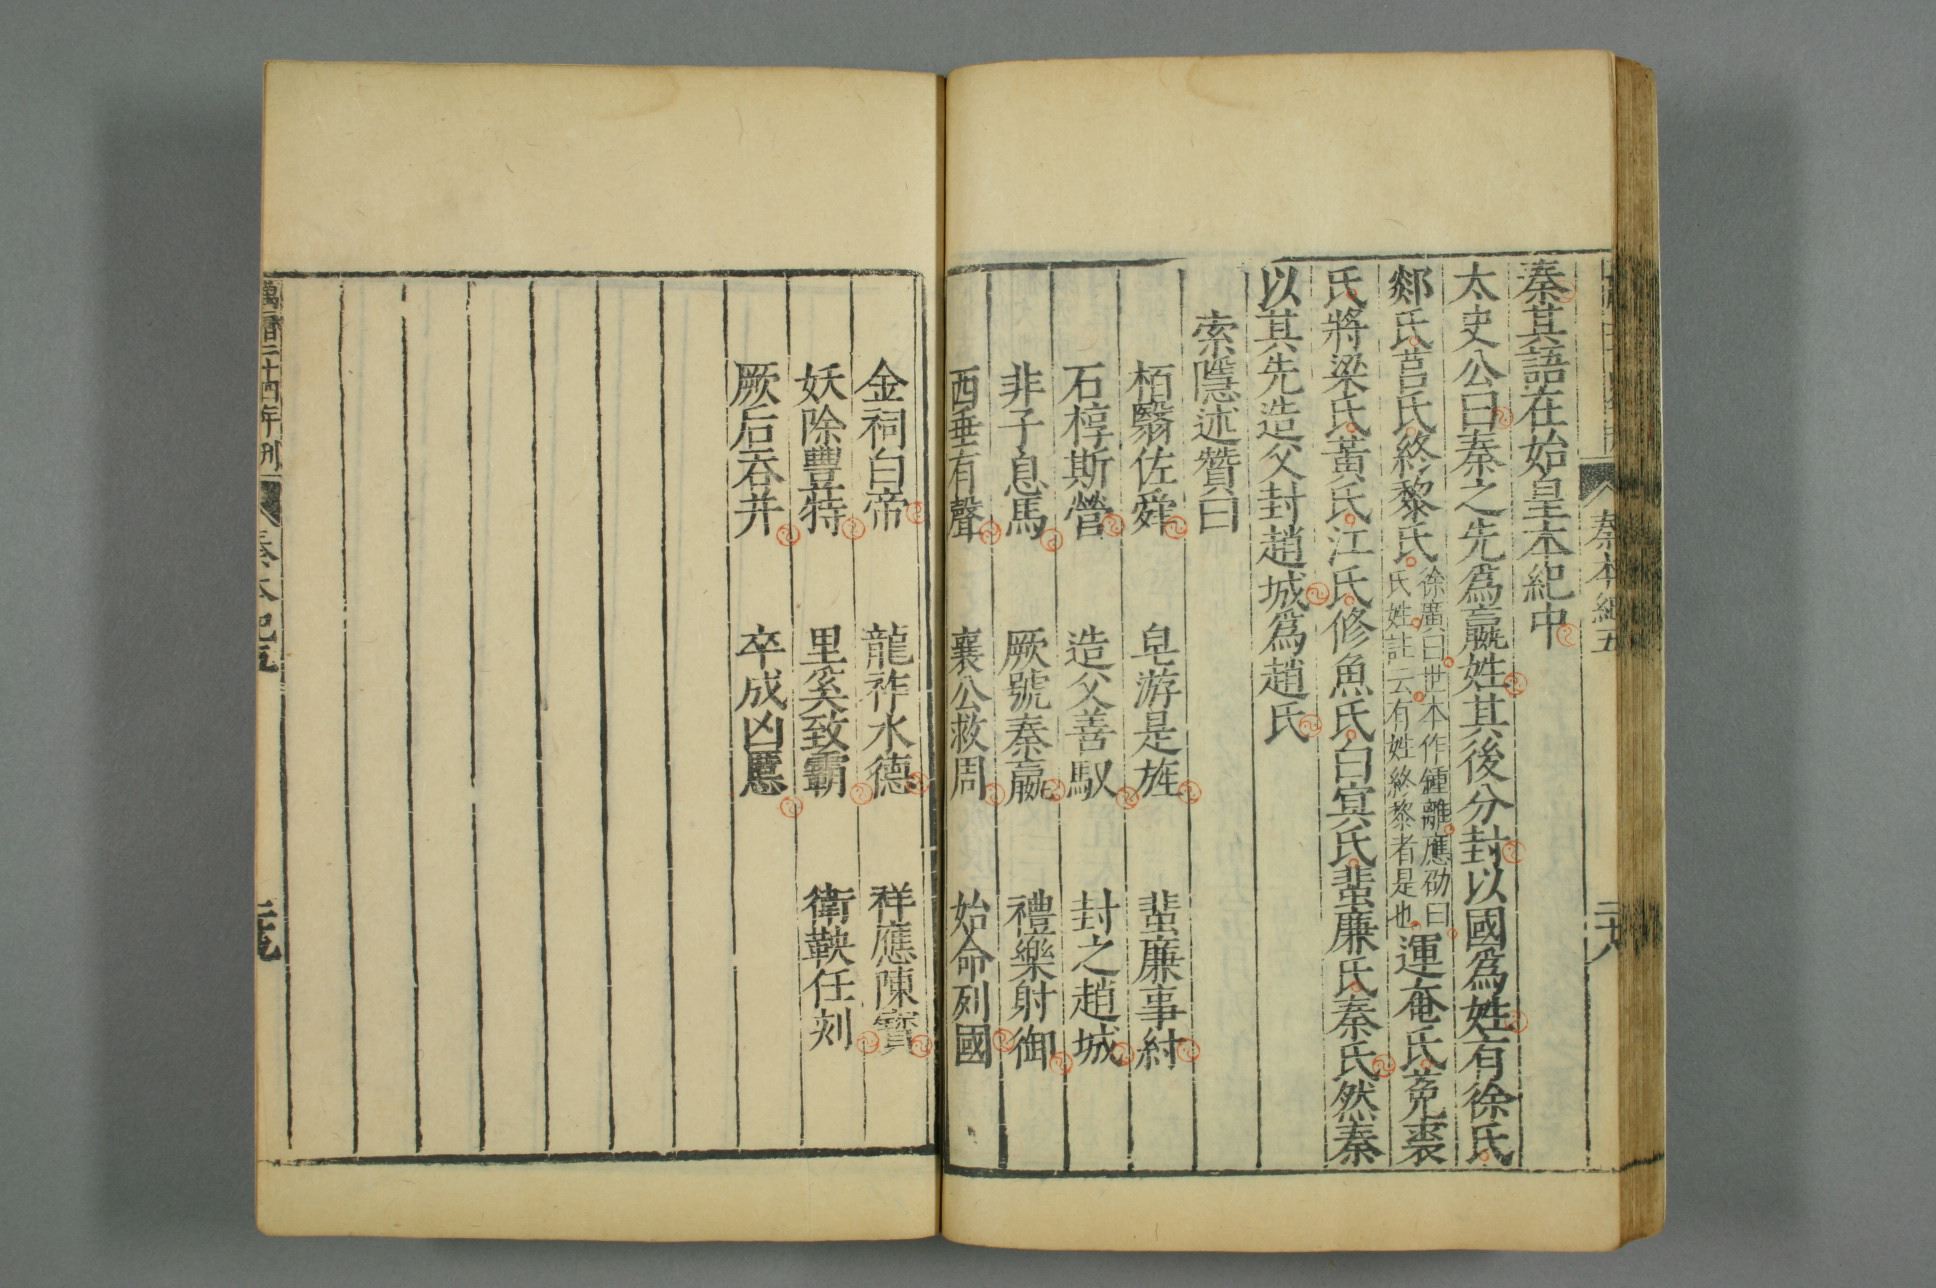 秦本紀五
二十八
秦其語在始皇本紀中
太史公曰秦之先為嬴姓其後分封以國為姓有徐氏
郯氏莒氏終黎氏徐廣曰世本作鍾離應劭曰氏姓註云有姓終黎者是也運奄氏菟裘
氏將梁氏黃氏江氏修魚氏白冥氏蜚廉氏秦氏然秦
以其先造父封趙城為趙氏
索隱述贊曰
栢翳佐舜 皂游是旌 蜚廉事紂
石椁斯營 造父善馭 封之趙城
非子息馬 厥號秦嬴 禮樂射御
西垂有聲 襄公救周 始命列國
金祠白帝 龍祚水德 祥應陳寶
妖除豐特 里奚致霸 衛鞅任刻
厥后吞并 卒成凶慝
萬曆二十四年刊
秦本紀五